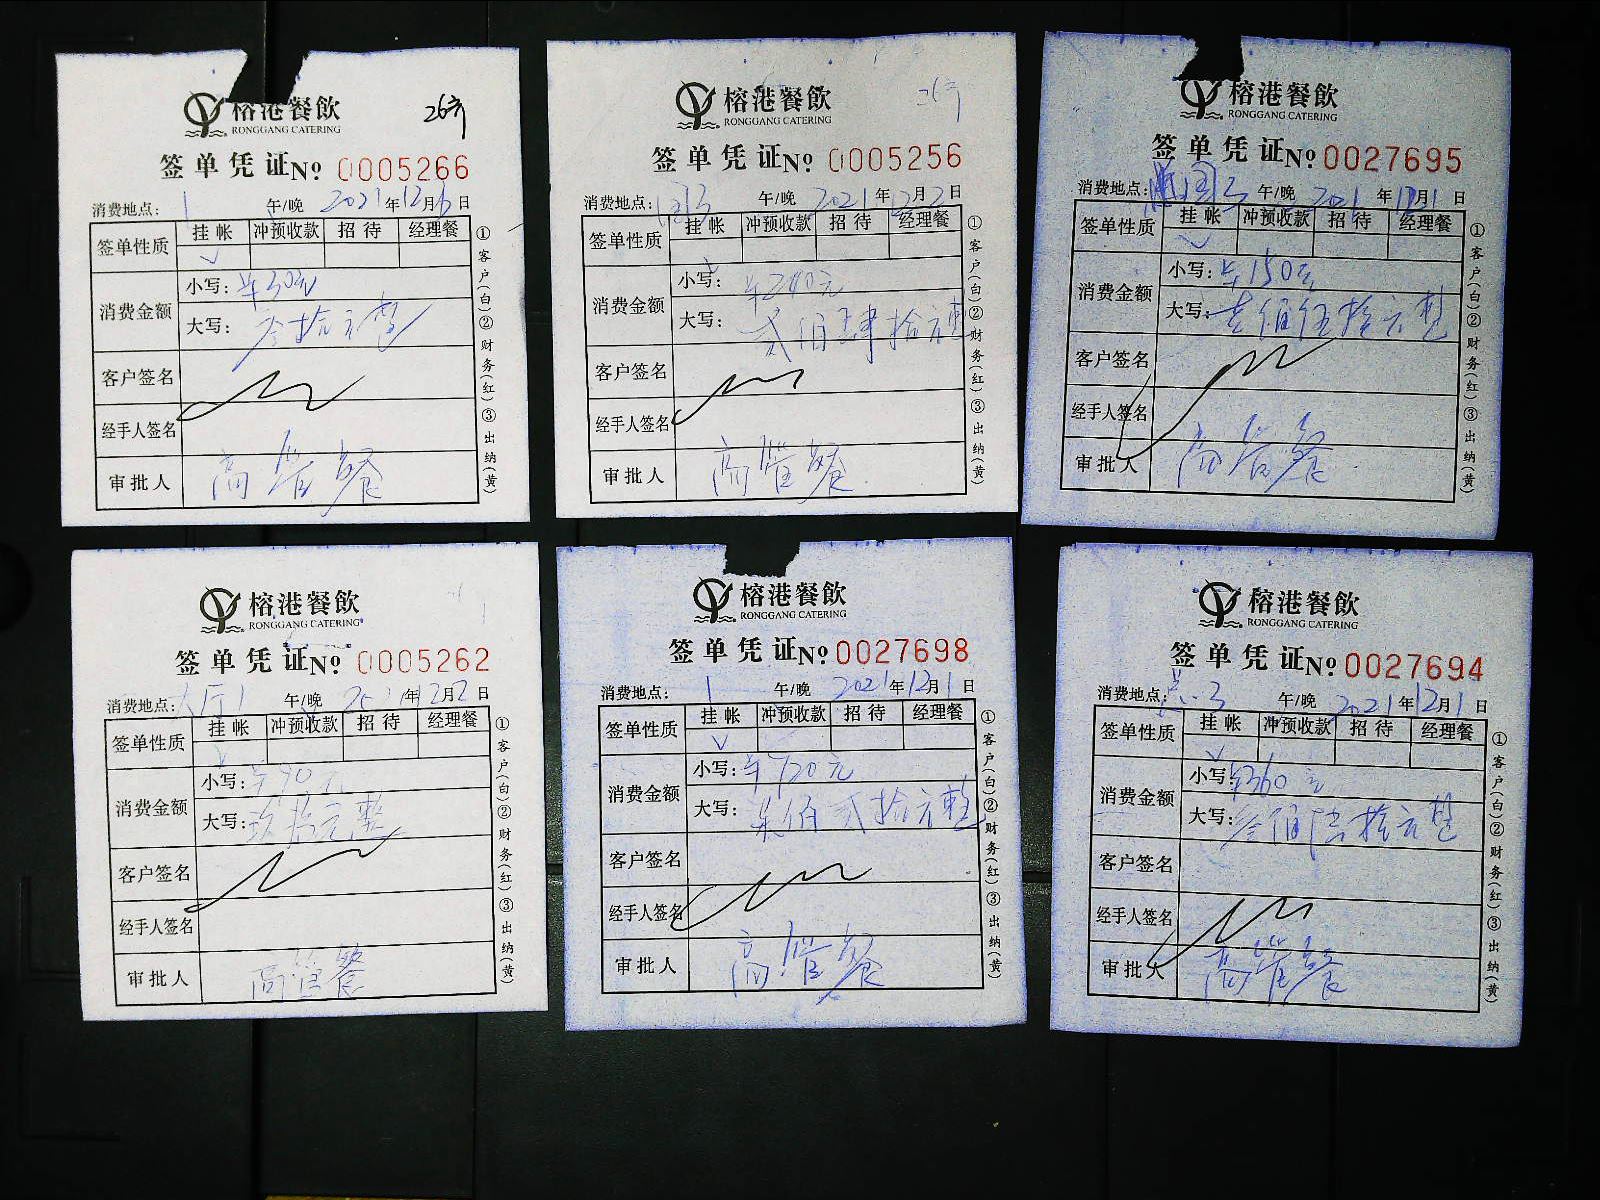 榕港餐飲
RONGGANG CATERING
签单凭证No 0005266
消费地点: 1 午/晚 2021年12月6日
签单性质 挂帐 冲预收款 招待 经理餐
√
消费金额 小写: ¥30元
大写: 叁拾元整
客户签名
经手人签名
审批人 高管餐
①客户(白)②财务(红)③出纳(黄)
榕港餐飲
RONGGANG CATERING
签单凭证No 0005256
消费地点: 午/晚 2021年12月2日
签单性质 挂帐 冲预收款 招待 经理餐
√
消费金额 小写: ¥240元
大写: 贰佰肆拾元整
客户签名
经手人签名
审批人 高管餐
①客户(白)②财务(红)③出纳(黄)
榕港餐飲
RONGGANG CATERING
签单凭证No 0027695
消费地点: 午/晚 2021年12月1日
签单性质 挂帐 冲预收款 招待 经理餐
√
消费金额 小写: ¥150元
大写: 壹佰伍拾元整
客户签名
经手人签名
审批人 高管餐
①客户(白)②财务(红)③出纳(黄)
榕港餐飲
RONGGANG CATERING
签单凭证No 0005262
消费地点: 大厅1 午/晚 年12月2日
签单性质 挂帐 冲预收款 招待 经理餐
√
消费金额 小写: ¥90元
大写: 玖拾元整
客户签名
经手人签名
审批人 高管餐
①客户(白)②财务(红)③出纳(黄)
榕港餐飲
RONGGANG CATERING
签单凭证No 0027698
消费地点: 1 午/晚 2021年12月1日
签单性质 挂帐 冲预收款 招待 经理餐
√
消费金额 小写: ¥720元
大写: 柒佰贰拾元整
客户签名
经手人签名
审批人 高管餐
①客户(白)②财务(红)③出纳(黄)
榕港餐飲
RONGGANG CATERING
签单凭证No 0027694
消费地点: 午/晚 2021年12月1日
签单性质 挂帐 冲预收款 招待 经理餐
√
消费金额 小写: ¥360元
大写: 叁佰陆拾元整
客户签名
经手人签名
审批人 高管餐
①客户(白)②财务(红)③出纳(黄)